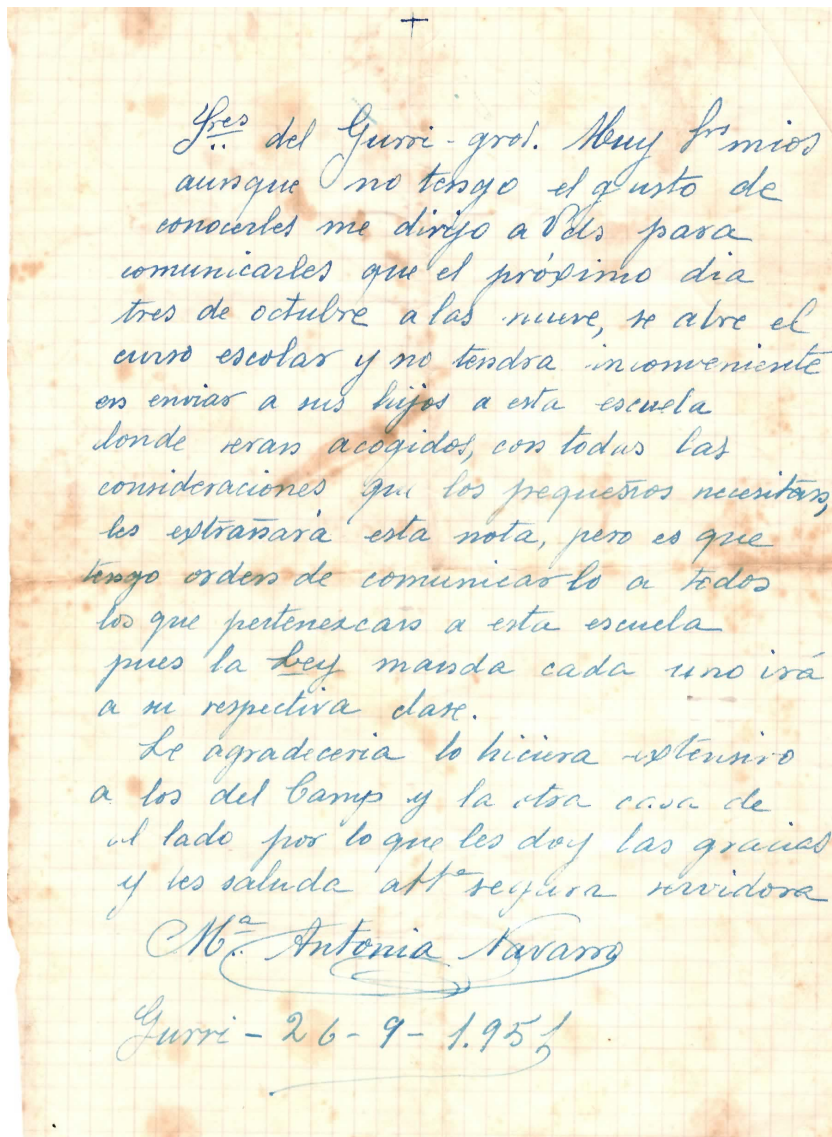 +
Sres del Gurri-grod. Muy Srs mios
aunque no tengo el gusto de
conocerles me dirijo a Vds para
comunicarles que el próximo dia
tres de octubre a las nueve, se abre el
curso escolar y no tendra inconveniente
en enviar a sus hijos a esta escuela
donde seran acogidos, con todas las
consideraciones que los pequeños necesitan,
les extrañará esta nota, pero es que
tengo orden de comunicarlo a todos
los que pertenezcan a esta escuela
pues la Ley manda cada uno irá
a su respectiva clase.
Le agradeceria lo hiciera extensivo
a los del Camp y la otra casa de
al lado por lo que les doy las gracias
y les saluda attª segura servidora
Mª. Antonia Navarro
Gurri - 26 - 9 - 1.951